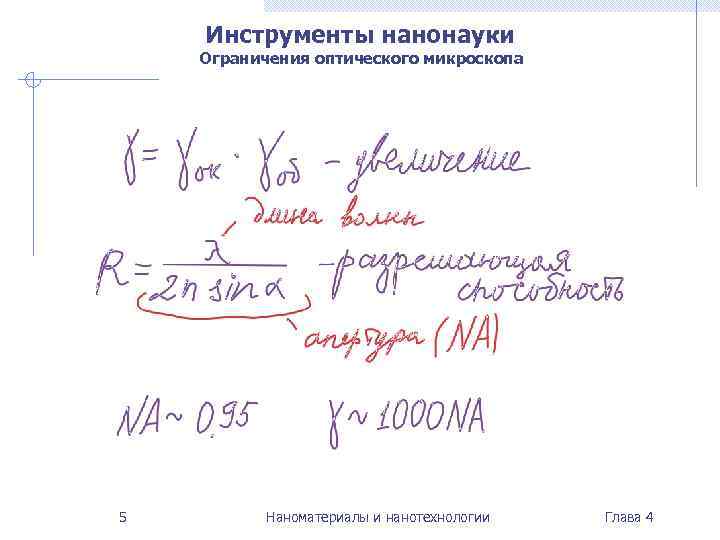 Инструменты нанонауки
Ограничения оптического микроскопа
γ = γок · γоб – увеличение
длина волны
R = λ / 2n sin α – разрешающая способность
апертура (NA)
NA ~ 0.95 γ ~ 1000NA
5 Наноматериалы и нанотехнологии Глава 4